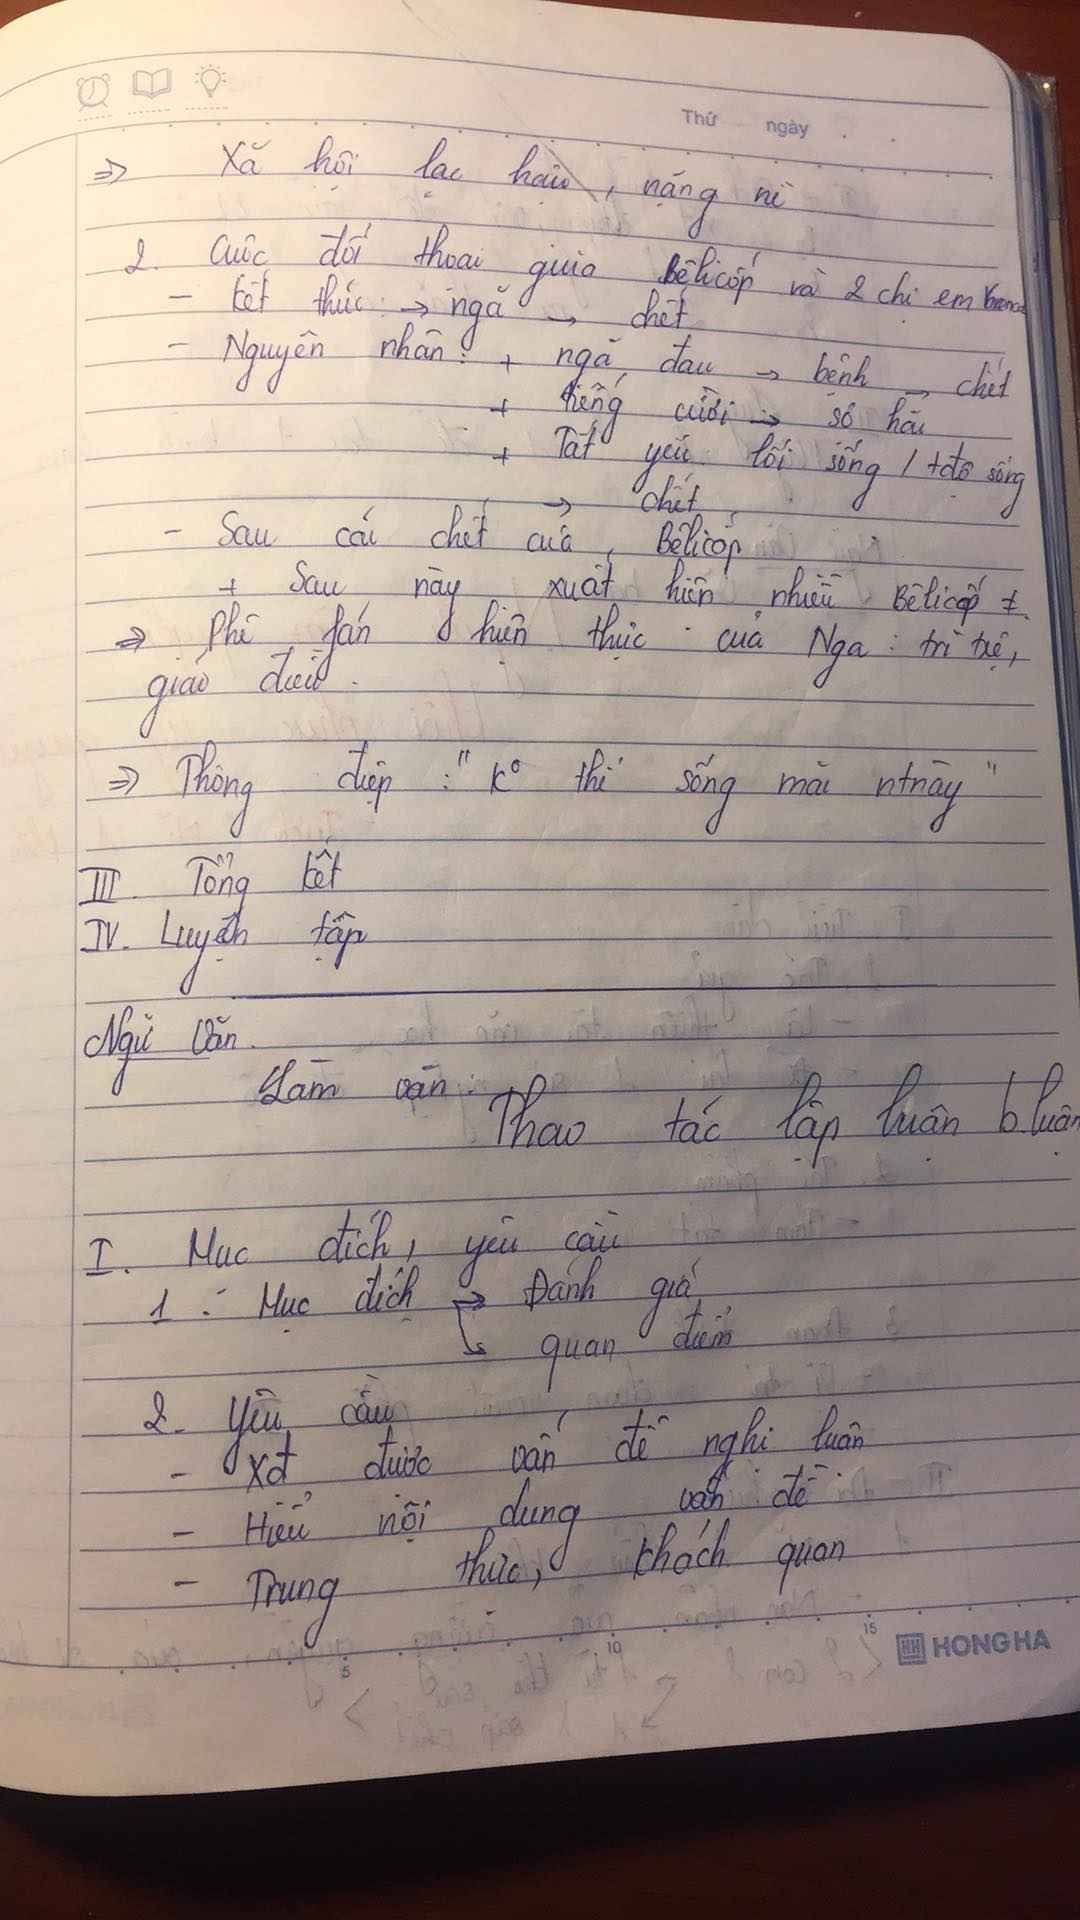 Thứ ngày
⇒ Xã hội lạc hậu, nặng nề
2. Cuộc đối thoại giữa Bêlicốp và 2 chị em
- kết thúc: → ngã → chết
- Nguyên nhân: + ngã, đau → bệnh → chết
+ tiếng cười → sợ hãi
+ Tất yếu: lối sống / tđộ sống
→ chết
- Sau cái chết của Bêlicốp
+ Sau này xuất hiện nhiều Bêlicốp ≠
⇒ Phê fán hiện thực của Nga: trì trệ,
giáo điều.
⇒ Thông điệp: "K° thể sống mãi ntnày"
III. Tổng kết
IV. Luyện tập
Ngữ Văn.
Làm văn:
Thao tác lập luận b luận
I. Mục đích, yêu cầu
1. Mục đích → Đánh giá
↳ quan điểm
2. Yêu cầu
- Xđ được vấn đề nghị luận
- Hiểu nội dung vấn đề
- Trung thực, khách quan
5 10 15
HH HONG HA